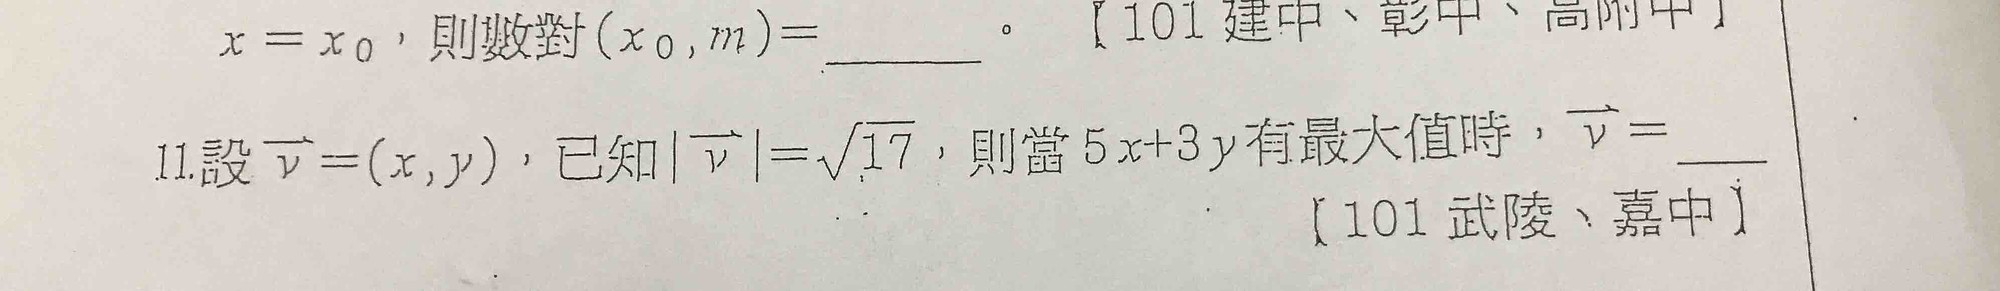 x = x₀，則數對(x₀,m)=______。 【101 建中、彰中、高附中】
11.設 \overrightarrow{v}=(x,y)，已知|\overrightarrow{v}|=√17，則當5x+3y有最大值時，\overrightarrow{v}=____
【101 武陵、嘉中】